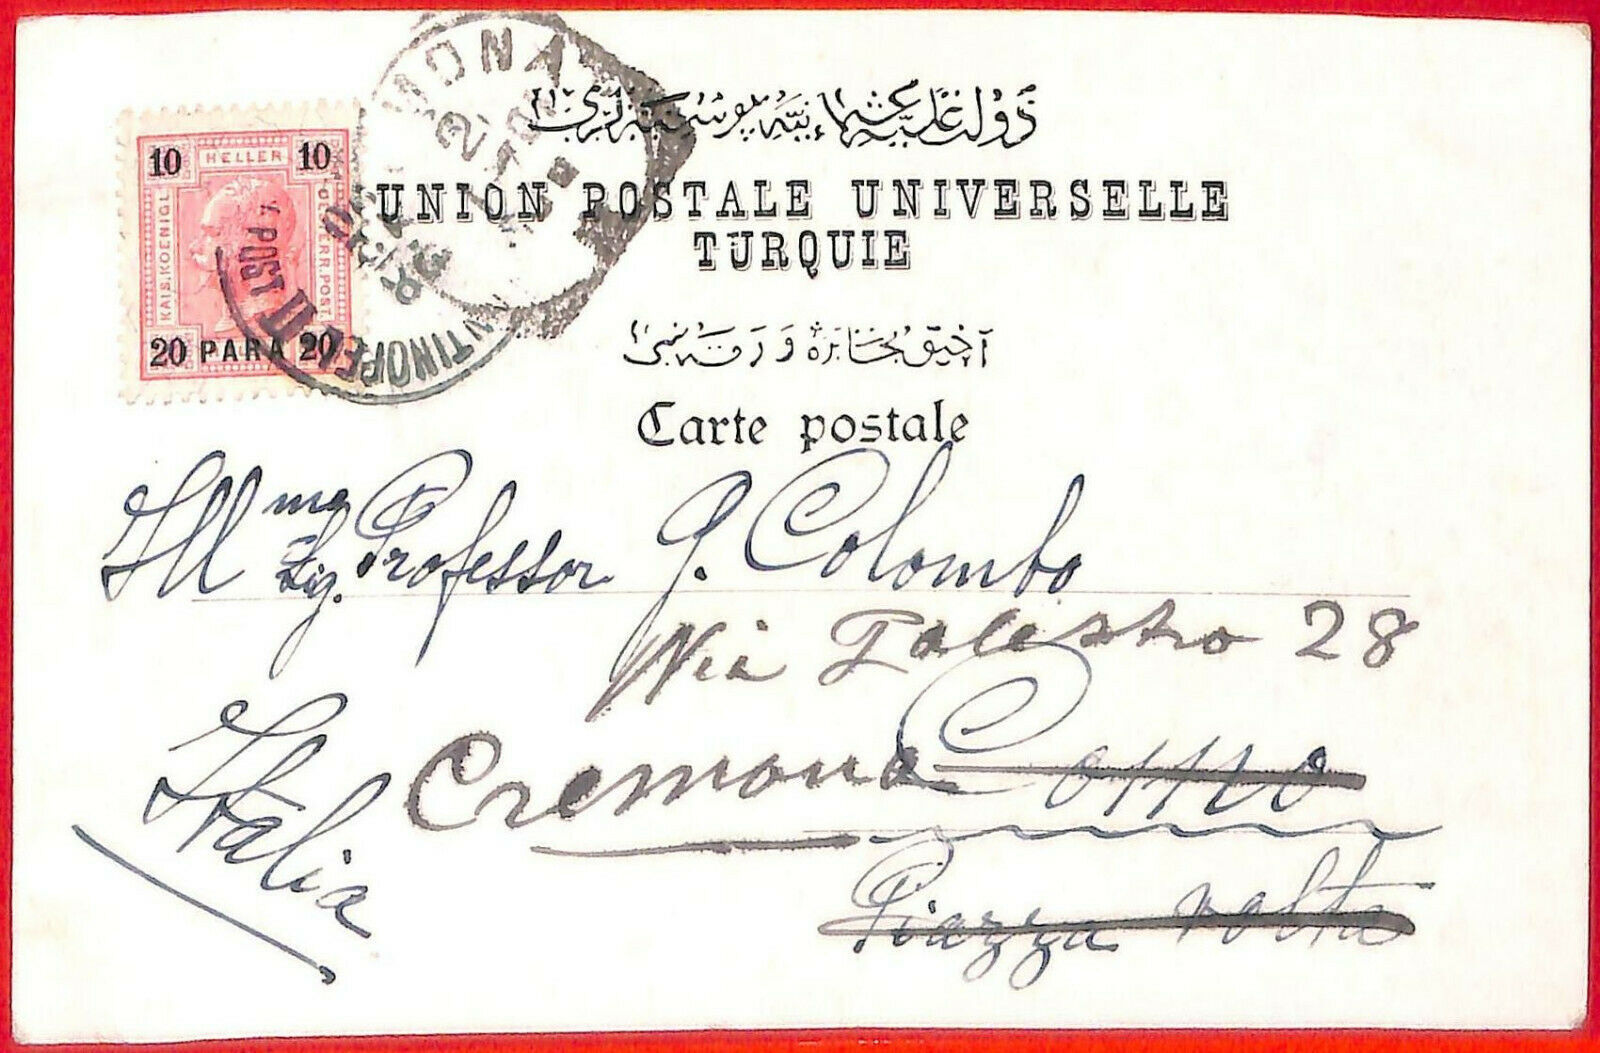 10 HELLER 10
KAIS. KOENIGL.
OESTERR. POST.
20 PARA 20
CONSTANTINOPEL II
POST
دولت علیهٔ عثمانیه پوسته لری
UNION POSTALE UNIVERSELLE
TURQUIE
Carte postale
Illma Sig. Professor G. Colombo
Via Palestro 28
Cremona Como
Piazza Volta
Italia